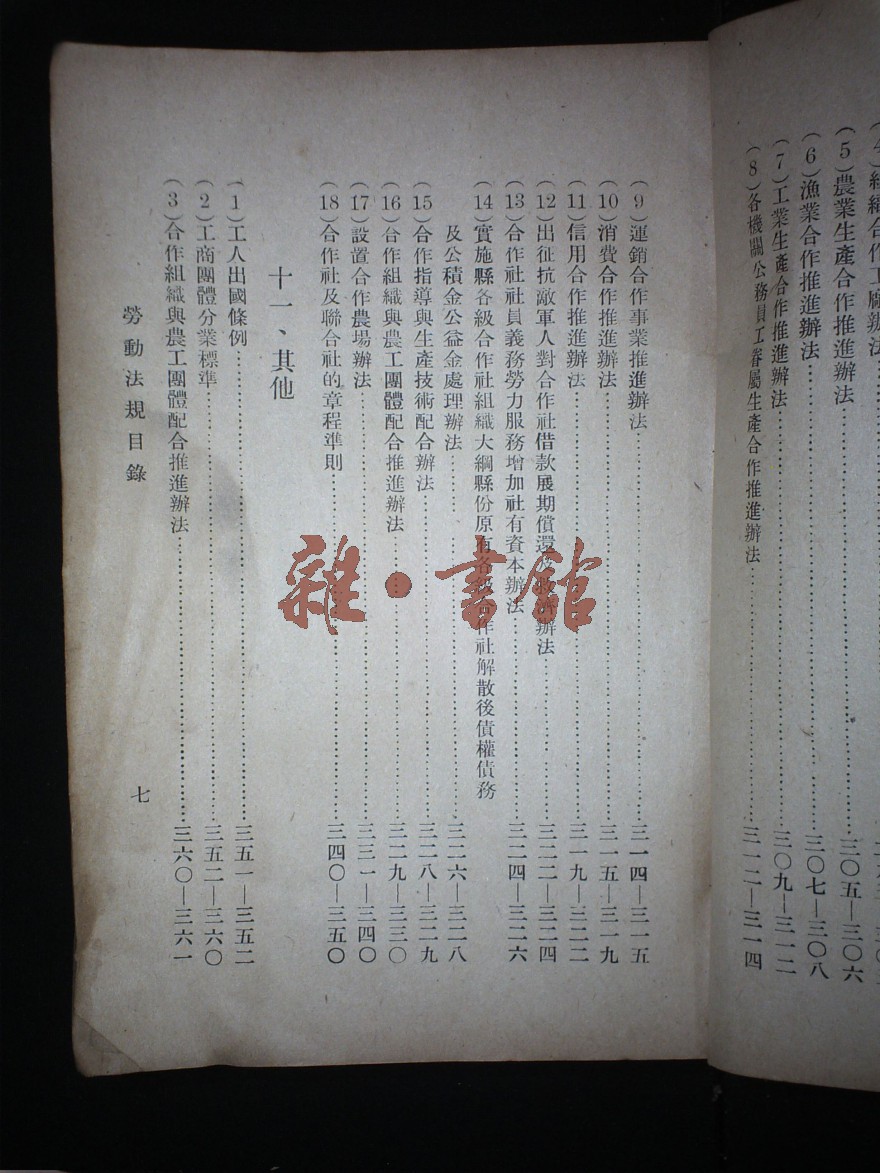 (5)農業生產合作推進辦法……三〇五—三〇六
(6)漁業合作推進辦法……三〇七—三〇八
(7)工業生產合作推進辦法……三〇九—三一二
(8)各機關公務員工眷屬生產合作推進辦法……三一二—三一四
(9)運銷合作事業推進辦法……三一四—三一五
(10)消費合作推進辦法……三一五—三一九
(11)信用合作推進辦法……三一九—三二二
(12)出征抗敵軍人對合作社借款展期償還及救濟辦法……三二二—三二四
(13)合作社社員義務勞力服務增加社有資本辦法……三二四—三二六
(14)實施縣各級合作社組織大綱縣份原有各級合作社解散後債權債務
及公積金公益金處理辦法……三二六—三二八
(15)合作指導與生產技術配合辦法……三二八—三二九
(16)合作組織與農工團體配合推進辦法……三二九—三三〇
(17)設置合作農場辦法……三三一—三四〇
(18)合作社及聯合社的章程準則……三四〇—三五〇
十一、其他
(1)工人出國條例……三五一—三五二
(2)工商團體分業標準……三五二—三六〇
(3)合作組織與農工團體配合推進辦法……三六〇—三六一
勞動法規目錄
七
雜·書館